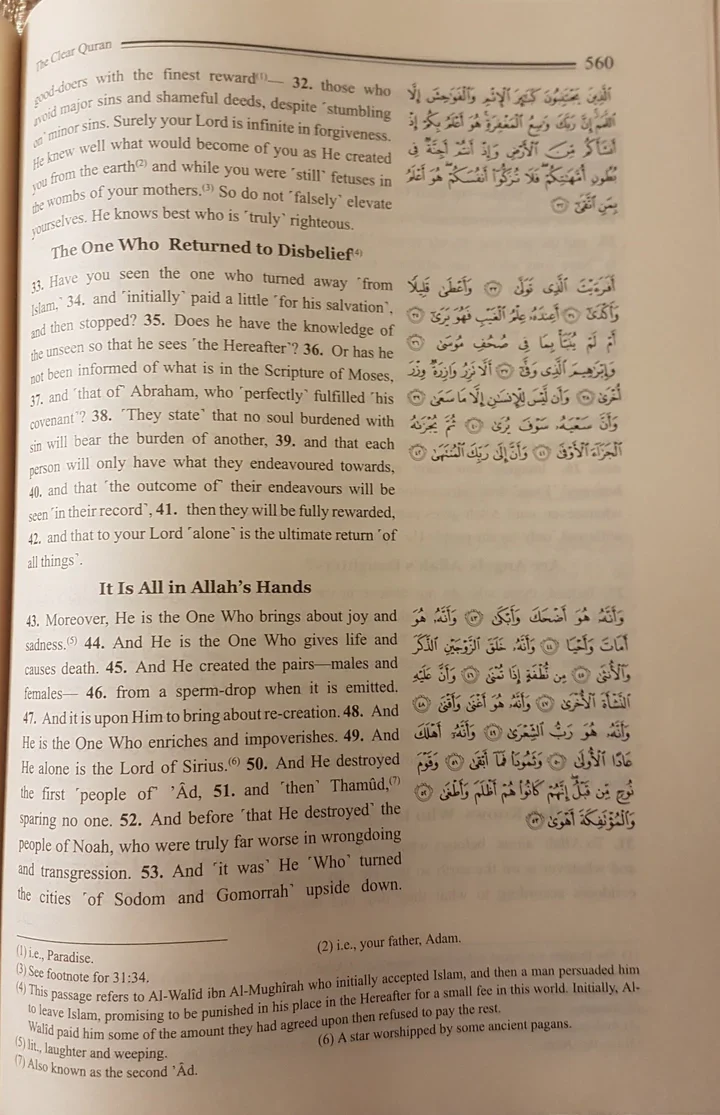 The Clear Quran 560
good-doers with the finest reward(1)— 32. those who
avoid major sins and shameful deeds, despite ˹stumbling
on˺ minor sins. Surely your Lord is infinite in forgiveness.
He knew well what would become of you as He created
you from the earth(2) and while you were ˹still˺ fetuses in
the wombs of your mothers.(3) So do not ˹falsely˺ elevate
yourselves. He knows best who is ˹truly˺ righteous.
ٱلَّذِينَ يَجْتَنِبُونَ كَبَٰٓئِرَ ٱلْإِثْمِ وَٱلْفَوَٰحِشَ إِلَّا
ٱللَّمَمَ إِنَّ رَبَّكَ وَٰسِعُ ٱلْمَغْفِرَةِ هُوَ أَعْلَمُ بِكُمْ إِذْ
أَنشَأَكُم مِّنَ ٱلْأَرْضِ وَإِذْ أَنتُمْ أَجِنَّةٌ فِى
بُطُونِ أُمَّهَٰتِكُمْ فَلَا تُزَكُّوٓا۟ أَنفُسَكُمْ هُوَ أَعْلَمُ
بِمَنِ ٱتَّقَىٰٓ ٣٢
The One Who Returned to Disbelief(4)
33. Have you seen the one who turned away ˹from
Islam,˺ 34. and ˹initially˺ paid a little ˹for his salvation˺,
and then stopped? 35. Does he have the knowledge of
the unseen so that he sees ˹the Hereafter˺? 36. Or has he
not been informed of what is in the Scripture of Moses,
37. and ˹that of˺ Abraham, who ˹perfectly˺ fulfilled ˹his
covenant˺? 38. ˹They state˺ that no soul burdened with
sin will bear the burden of another, 39. and that each
person will only have what they endeavoured towards,
40. and that ˹the outcome of˺ their endeavours will be
seen ˹in their record˺, 41. then they will be fully rewarded,
42. and that to your Lord ˹alone˺ is the ultimate return ˹of
all things˺.
أَفَرَءَيْتَ ٱلَّذِى تَوَلَّىٰ ٣٣ وَأَعْطَىٰ قَلِيلًا
وَأَكْدَىٰٓ ٣٤ أَعِندَهُۥ عِلْمُ ٱلْغَيْبِ فَهُوَ يَرَىٰٓ ٣٥
أَمْ لَمْ يُنَبَّأْ بِمَا فِى صُحُفِ مُوسَىٰ ٣٦
وَإِبْرَٰهِيمَ ٱلَّذِى وَفَّىٰٓ ٣٧ أَلَّا تَزِرُ وَازِرَةٌ وِزْرَ
أُخْرَىٰ ٣٨ وَأَن لَّيْسَ لِلْإِنسَٰنِ إِلَّا مَا سَعَىٰ ٣٩
وَأَنَّ سَعْيَهُۥ سَوْفَ يُرَىٰ ٤٠ ثُمَّ يُجْزَىٰهُ
ٱلْجَزَآءَ ٱلْأَوْفَىٰ ٤١ وَأَنَّ إِلَىٰ رَبِّكَ ٱلْمُنتَهَىٰ ٤٢
It Is All in Allah's Hands
43. Moreover, He is the One Who brings about joy and
sadness.(5) 44. And He is the One Who gives life and
causes death. 45. And He created the pairs—males and
females— 46. from a sperm-drop when it is emitted.
47. And it is upon Him to bring about re-creation. 48. And
He is the One Who enriches and impoverishes. 49. And
He alone is the Lord of Sirius.(6) 50. And He destroyed
the first ˹people of˺ ’Âd, 51. and ˹then˺ Thamûd,(7)
sparing no one. 52. And before ˹that He destroyed˺ the
people of Noah, who were truly far worse in wrongdoing
and transgression. 53. And ˹it was˺ He ˹Who˺ turned
the cities ˹of Sodom and Gomorrah˺ upside down.
وَأَنَّهُۥ هُوَ أَضْحَكَ وَأَبْكَىٰ ٤٣ وَأَنَّهُۥ هُوَ
أَمَاتَ وَأَحْيَا ٤٤ وَأَنَّهُۥ خَلَقَ ٱلزَّوْجَيْنِ ٱلذَّكَرَ
وَٱلْأُنثَىٰ ٤٥ مِن نُّطْفَةٍ إِذَا تُمْنَىٰ ٤٦ وَأَنَّ عَلَيْهِ
ٱلنَّشْأَةَ ٱلْأُخْرَىٰ ٤٧ وَأَنَّهُۥ هُوَ أَغْنَىٰ وَأَقْنَىٰ ٤٨
وَأَنَّهُۥ هُوَ رَبُّ ٱلشِّعْرَىٰ ٤٩ وَأَنَّهُۥٓ أَهْلَكَ
عَادًا ٱلْأُولَىٰ ٥٠ وَثَمُودَا۟ فَمَآ أَبْقَىٰ ٥١ وَقَوْمَ
نُوحٍ مِّن قَبْلُ إِنَّهُمْ كَانُوا۟ هُمْ أَظْلَمَ وَأَطْغَىٰ ٥٢
وَٱلْمُؤْتَفِكَةَ أَهْوَىٰ ٥٣
(1) i.e., Paradise. (2) i.e., your father, Adam.
(3) See footnote for 31:34.
(4) This passage refers to Al-Walîd ibn Al-Mughîrah who initially accepted Islam, and then a man persuaded him
to leave Islam, promising to be punished in his place in the Hereafter for a small fee in this world. Initially, Al-
Walîd paid him some of the amount they had agreed upon then refused to pay the rest.
(5) lit., laughter and weeping. (6) A star worshipped by some ancient pagans.
(7) Also known as the second ’Âd.